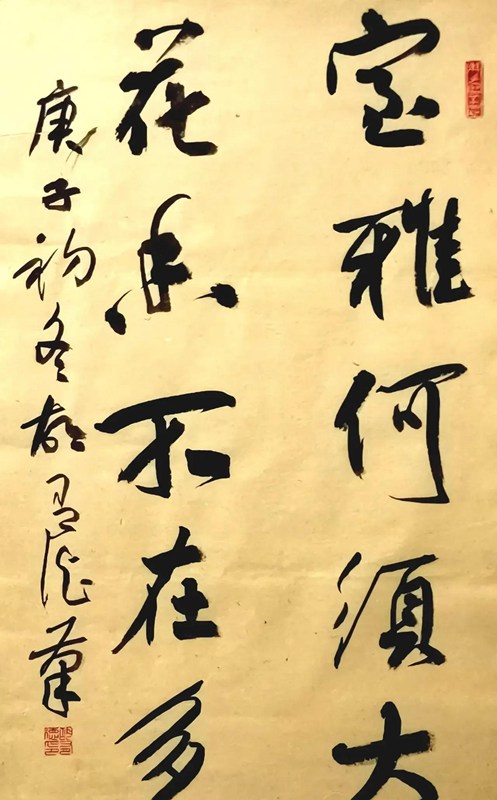 室雅何須大
花香不在多
庚子初冬胡